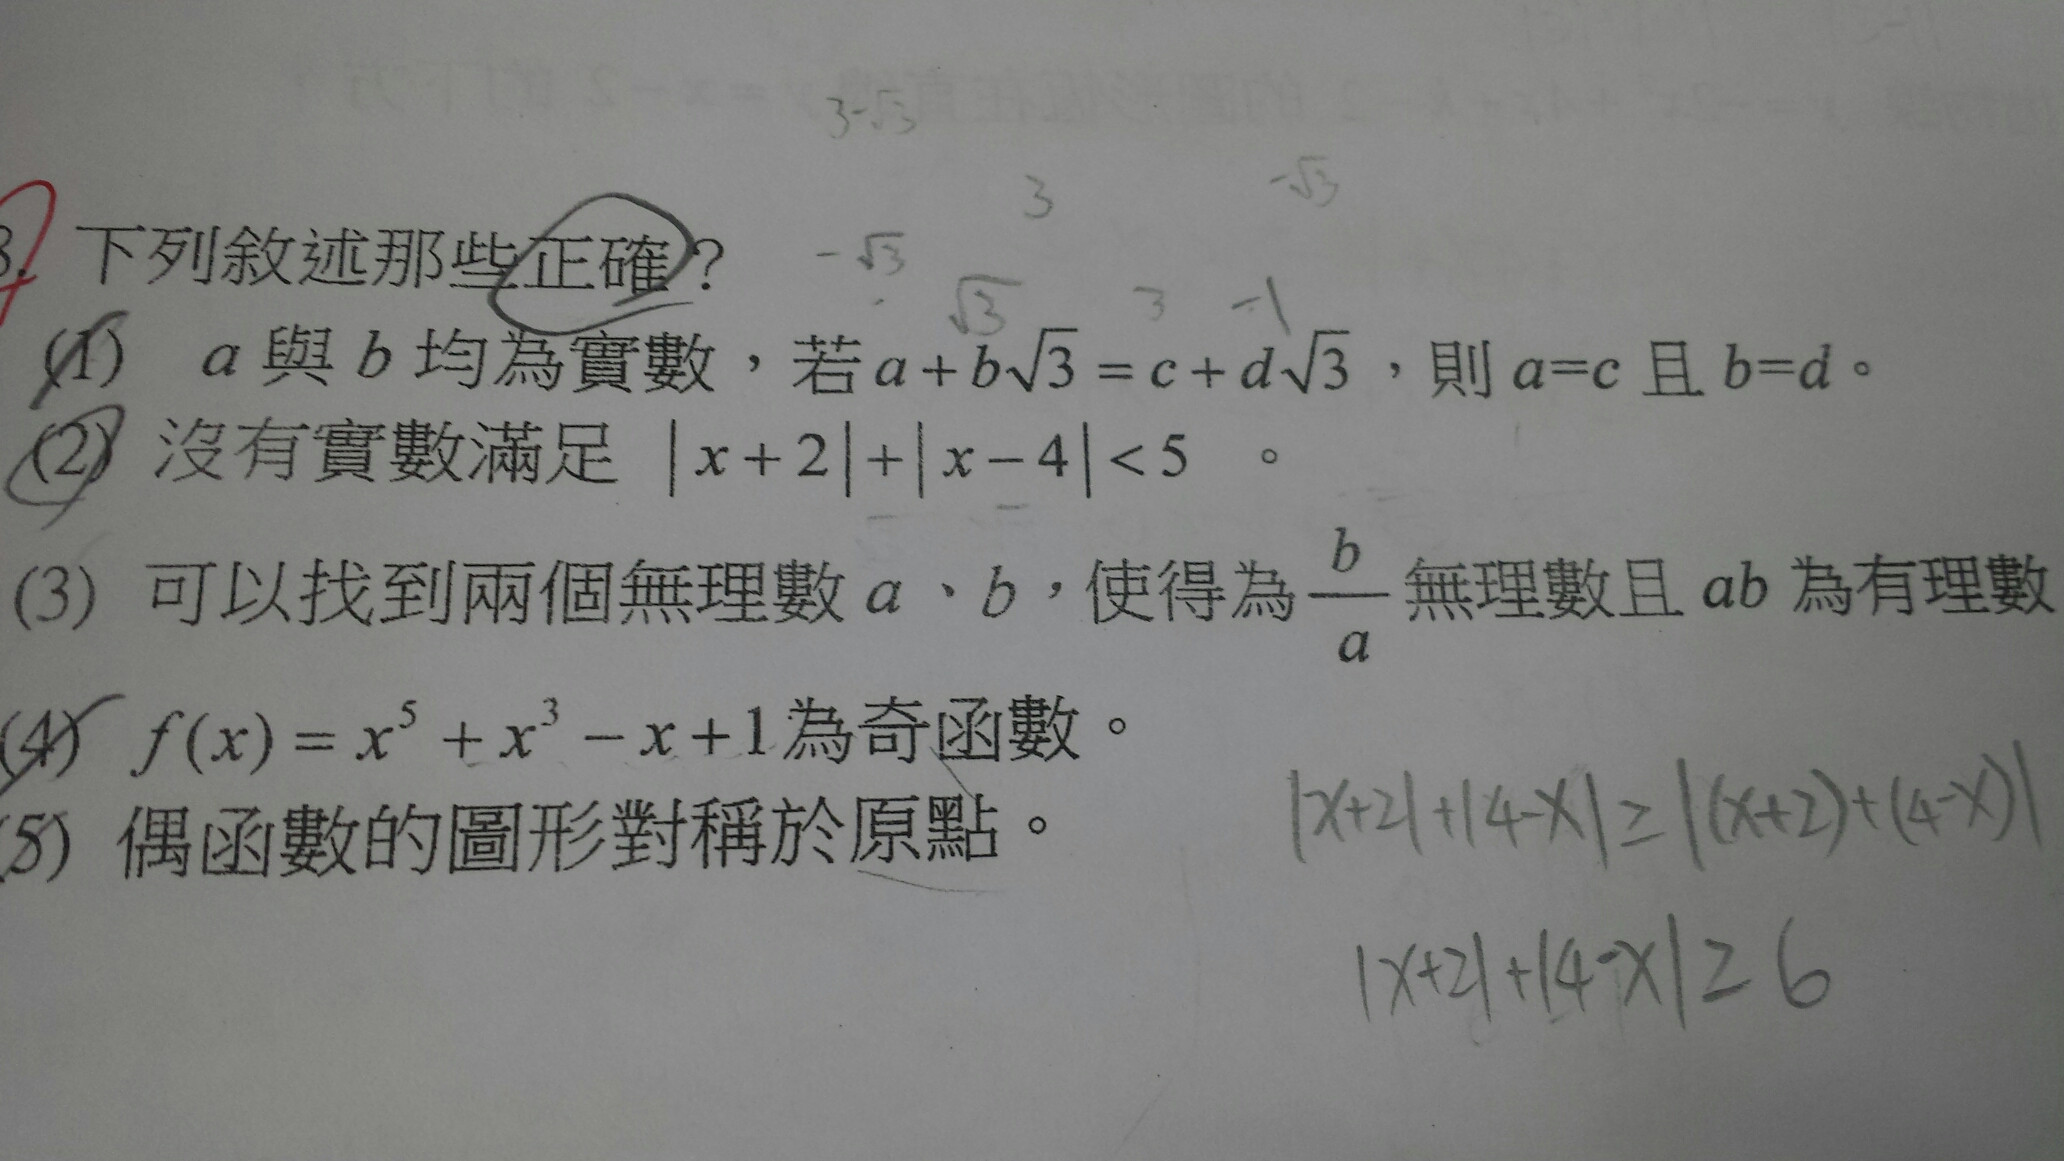 3-√3
3 -√3
-√3
3. 下列敘述那些正確?
√3 3 -1
(1) a 與 b 均為實數,若 a+b√3 = c+d√3,則 a=c 且 b=d。
(2) 沒有實數滿足 |x+2|+|x-4|<5 。
(3) 可以找到兩個無理數 a、b,使得為 b/a 無理數且 ab 為有理數
(4) f(x) = x⁵ + x³ - x + 1 為奇函數。
(5) 偶函數的圖形對稱於原點。
|x+2|+|4-x| ≥ |(x+2)+(4-x)|
|x+2|+|4-x| ≥ 6